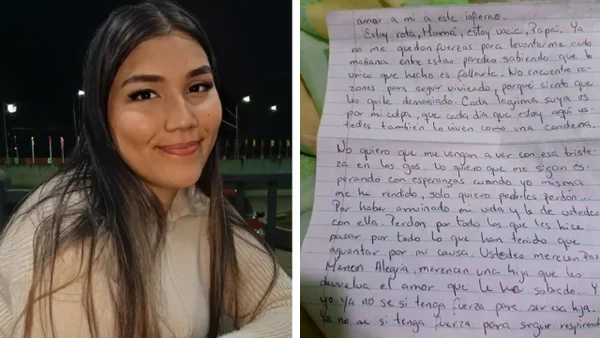 amor a mi a este infierno.
Estoy rota, Mamá, estoy vacia, Papá. Ya
no me quedan fuerzas para levantarme cada
mañana entre estas paredes sabiendo que lo
unico que hecho es fallarle. No encuentro ra-
zones para seguir viviendo, porque siento que
les quite demasiado. Cada lagrima suya es
por mi culpa, que cada dia que estoy aqui us-
tedes tambien lo viven como una condena.
No quiero que me vengan a ver con esa triste-
za en los ojos. No quiero que me sigan es-
perando con esperanzas cuando yo misma
me he rendido, solo quiero pedirles perdón...
Por haber arruinado mi vida y la de ustedes
con ella. Perdon por todo los que les hice
pasar por todo lo que han tenido que
aguantar por mi causa. Ustedes merecen Paz
Merecen Alegria, merencen una hija que les
devuelva el amor que le ha sobrado... Y
yo ya no se si tenga fuerza para ser esa hija.
Ya no se si tenga fuerza para seguir respirando